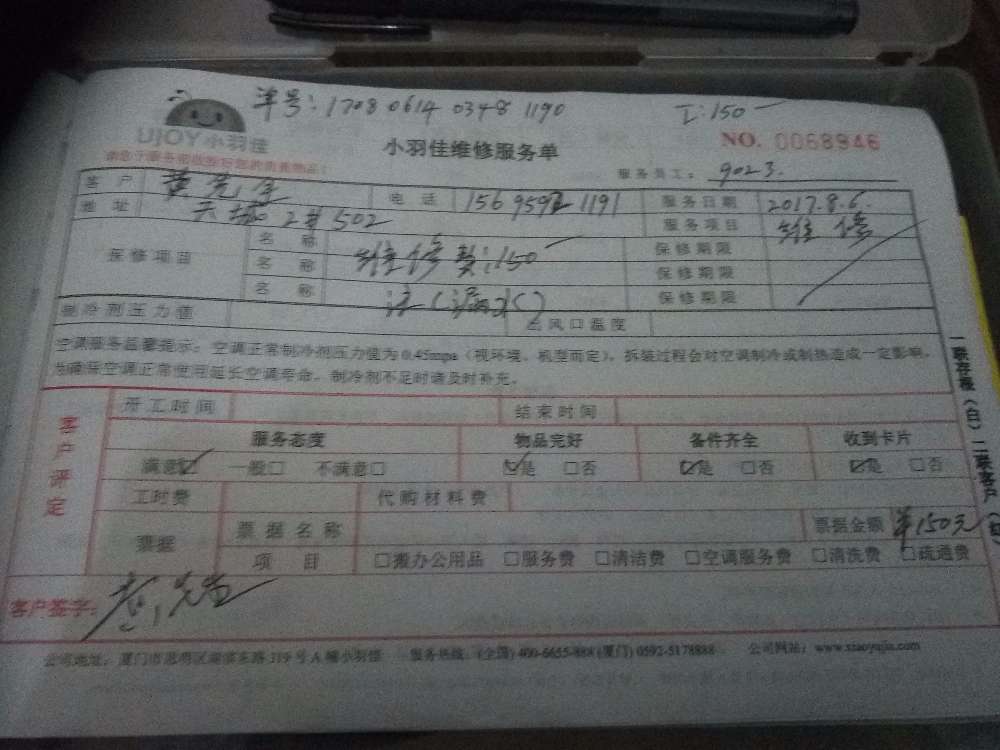 单号:1708 0614 0348 1190 工:150
UJOY小羽佳
小羽佳维修服务单
NO. 0068946
服务员工: 9023.
客户 电话 服务日期 2017.8.6.
地址 2# 502 服务项目 维修
保修项目 名称 维修费:150 保修期限
名称 保修期限
名称 注(漏水) 保修期限
制冷剂压力值 出风口温度
空调服务温馨提示:空调正常制冷剂压力值为0.45mpa(视环境、机型而定),拆装过程会对空调制冷或制热造成一定影响,
为确保空调正常使用延长空调寿命,制冷剂不足时请及时补充。
客户评定
开工时间 结束时间
服务态度 物品完好 备件齐全 收到卡片
满意☑ 一般□ 不满意□ ☑是 □否 ☑是 □否 ☑是 □否
工时费 代购材料费
票据 票据名称 票据金额 ¥150元
项目 □搬办公用品 □服务费 □清洁费 □空调服务费 □清洗费 □疏通费
客户签字:
公司地址:厦门市思明区湖滨东路319号A幢小羽佳 服务热线:(全国) 400-6655-888 (厦门) 0592-5178888 公司网站:www.xiaoyujia.com
一联存根(白)二联客户